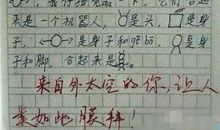 来是一个机器人，是头，是身
子，是身子和胳膊，是身
子和脚，合起来是
来自外太空的你，让人
类如此膜拜！